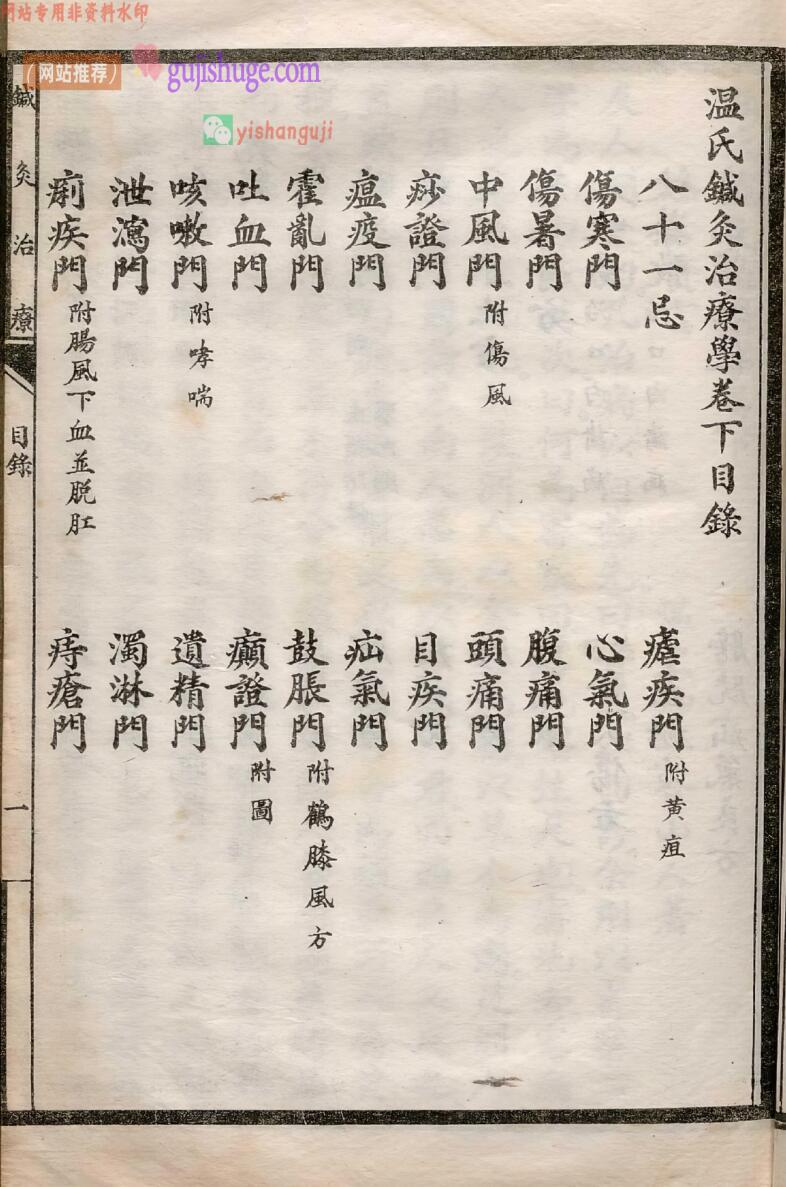 网站专用非资料水印
（网站推荐）
gujishuge.com
yishanguji
温氏鍼灸治療學卷下目錄
八十一忌
瘧疾門 附黄疸
傷寒門
心氣門
傷暑門
腹痛門
中風門 附傷風
頭痛門
痧證門
目疾門
瘟疫門
疝氣門
霍亂門
鼓脹門 附鶴膝風方
吐血門
癲證門 附圖
咳嗽門 附哮喘
遺精門
泄瀉門
濁淋門
痢疾門 附腸風下血並脱肛
痔瘡門
鍼灸治療
目錄
一